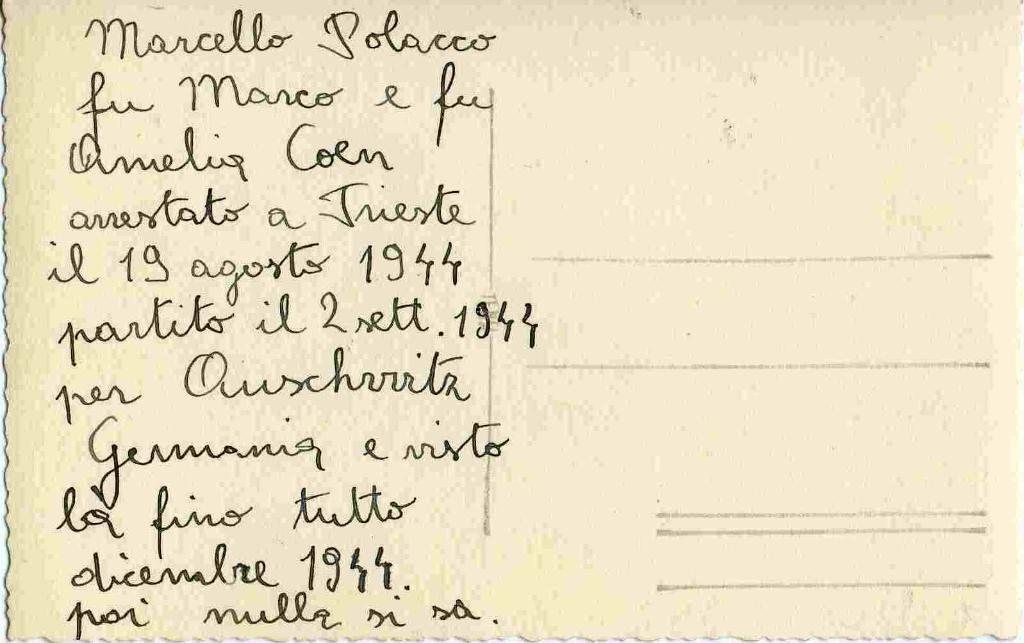 Marcello Polacco
fu Marco e fu
Amelia Coen
arrestato a Trieste
il 19 agosto 1944
partito il 2 sett. 1944
per Auschwitz
Germania e visto
là fino tutto
dicembre 1944.
poi nulla si sa.